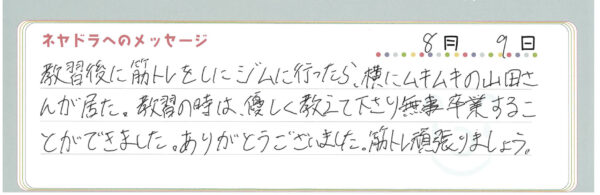 ネヤドラへのメッセージ
8月 9日
教習後に筋トレをしにジムに行ったら、横にムキムキの山田さ
んが居た。教習の時は、優しく教えて下さり無事卒業するこ
とができました。ありがとうございました。筋トレ頑張りましょう。